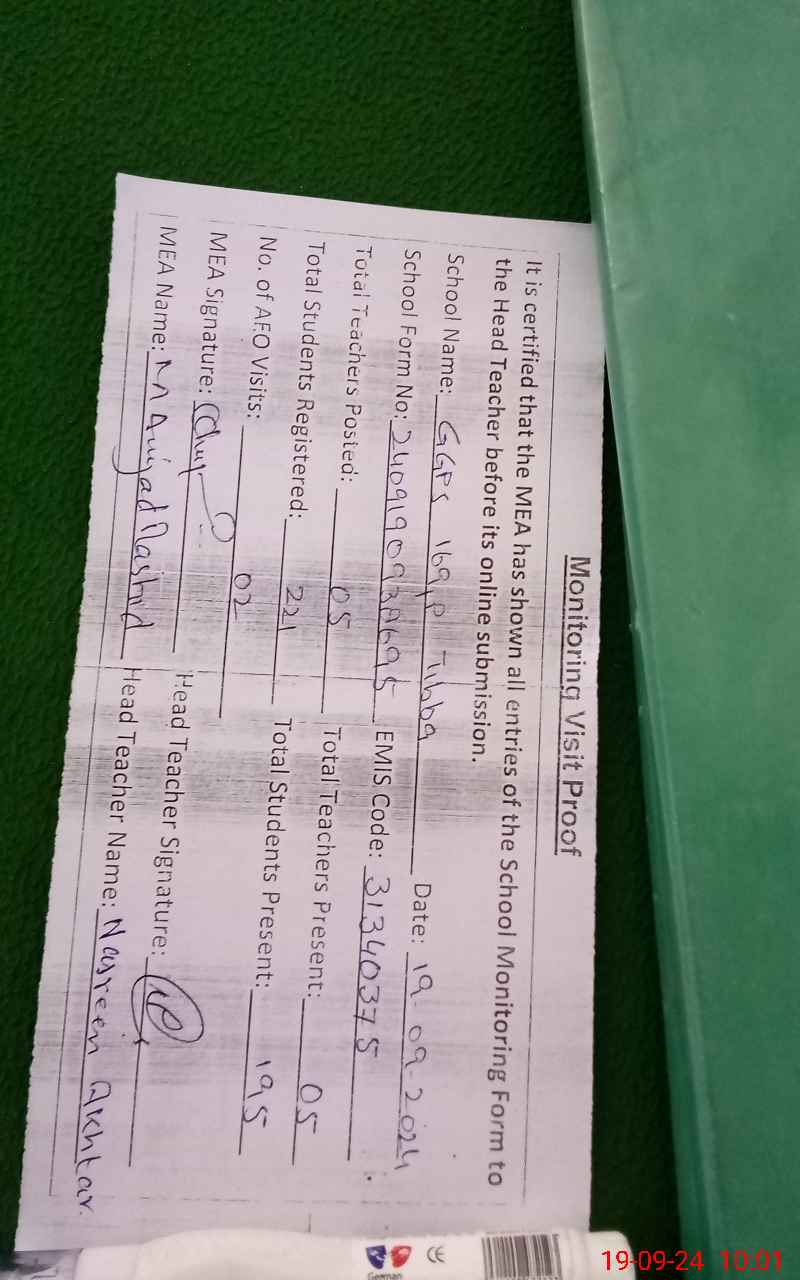 Monitoring Visit Proof
It is certified that the MEA has shown all entries of the School Monitoring Form to
the Head Teacher before its online submission.
School Name: GGPS 169/P Tibba Date: 19-09-2024
School Form No: EMIS Code: 31340375
Total Teachers Posted: 05 Total Teachers Present: 05
Total Students Registered: 221 Total Students Present: 195
No. of AEO Visits: 02
MEA Signature: Head Teacher Signature:
MEA Name: M Amjad Rashid Head Teacher Name: Nasreen Akhtar.
CE
German
19-09-24 10:01